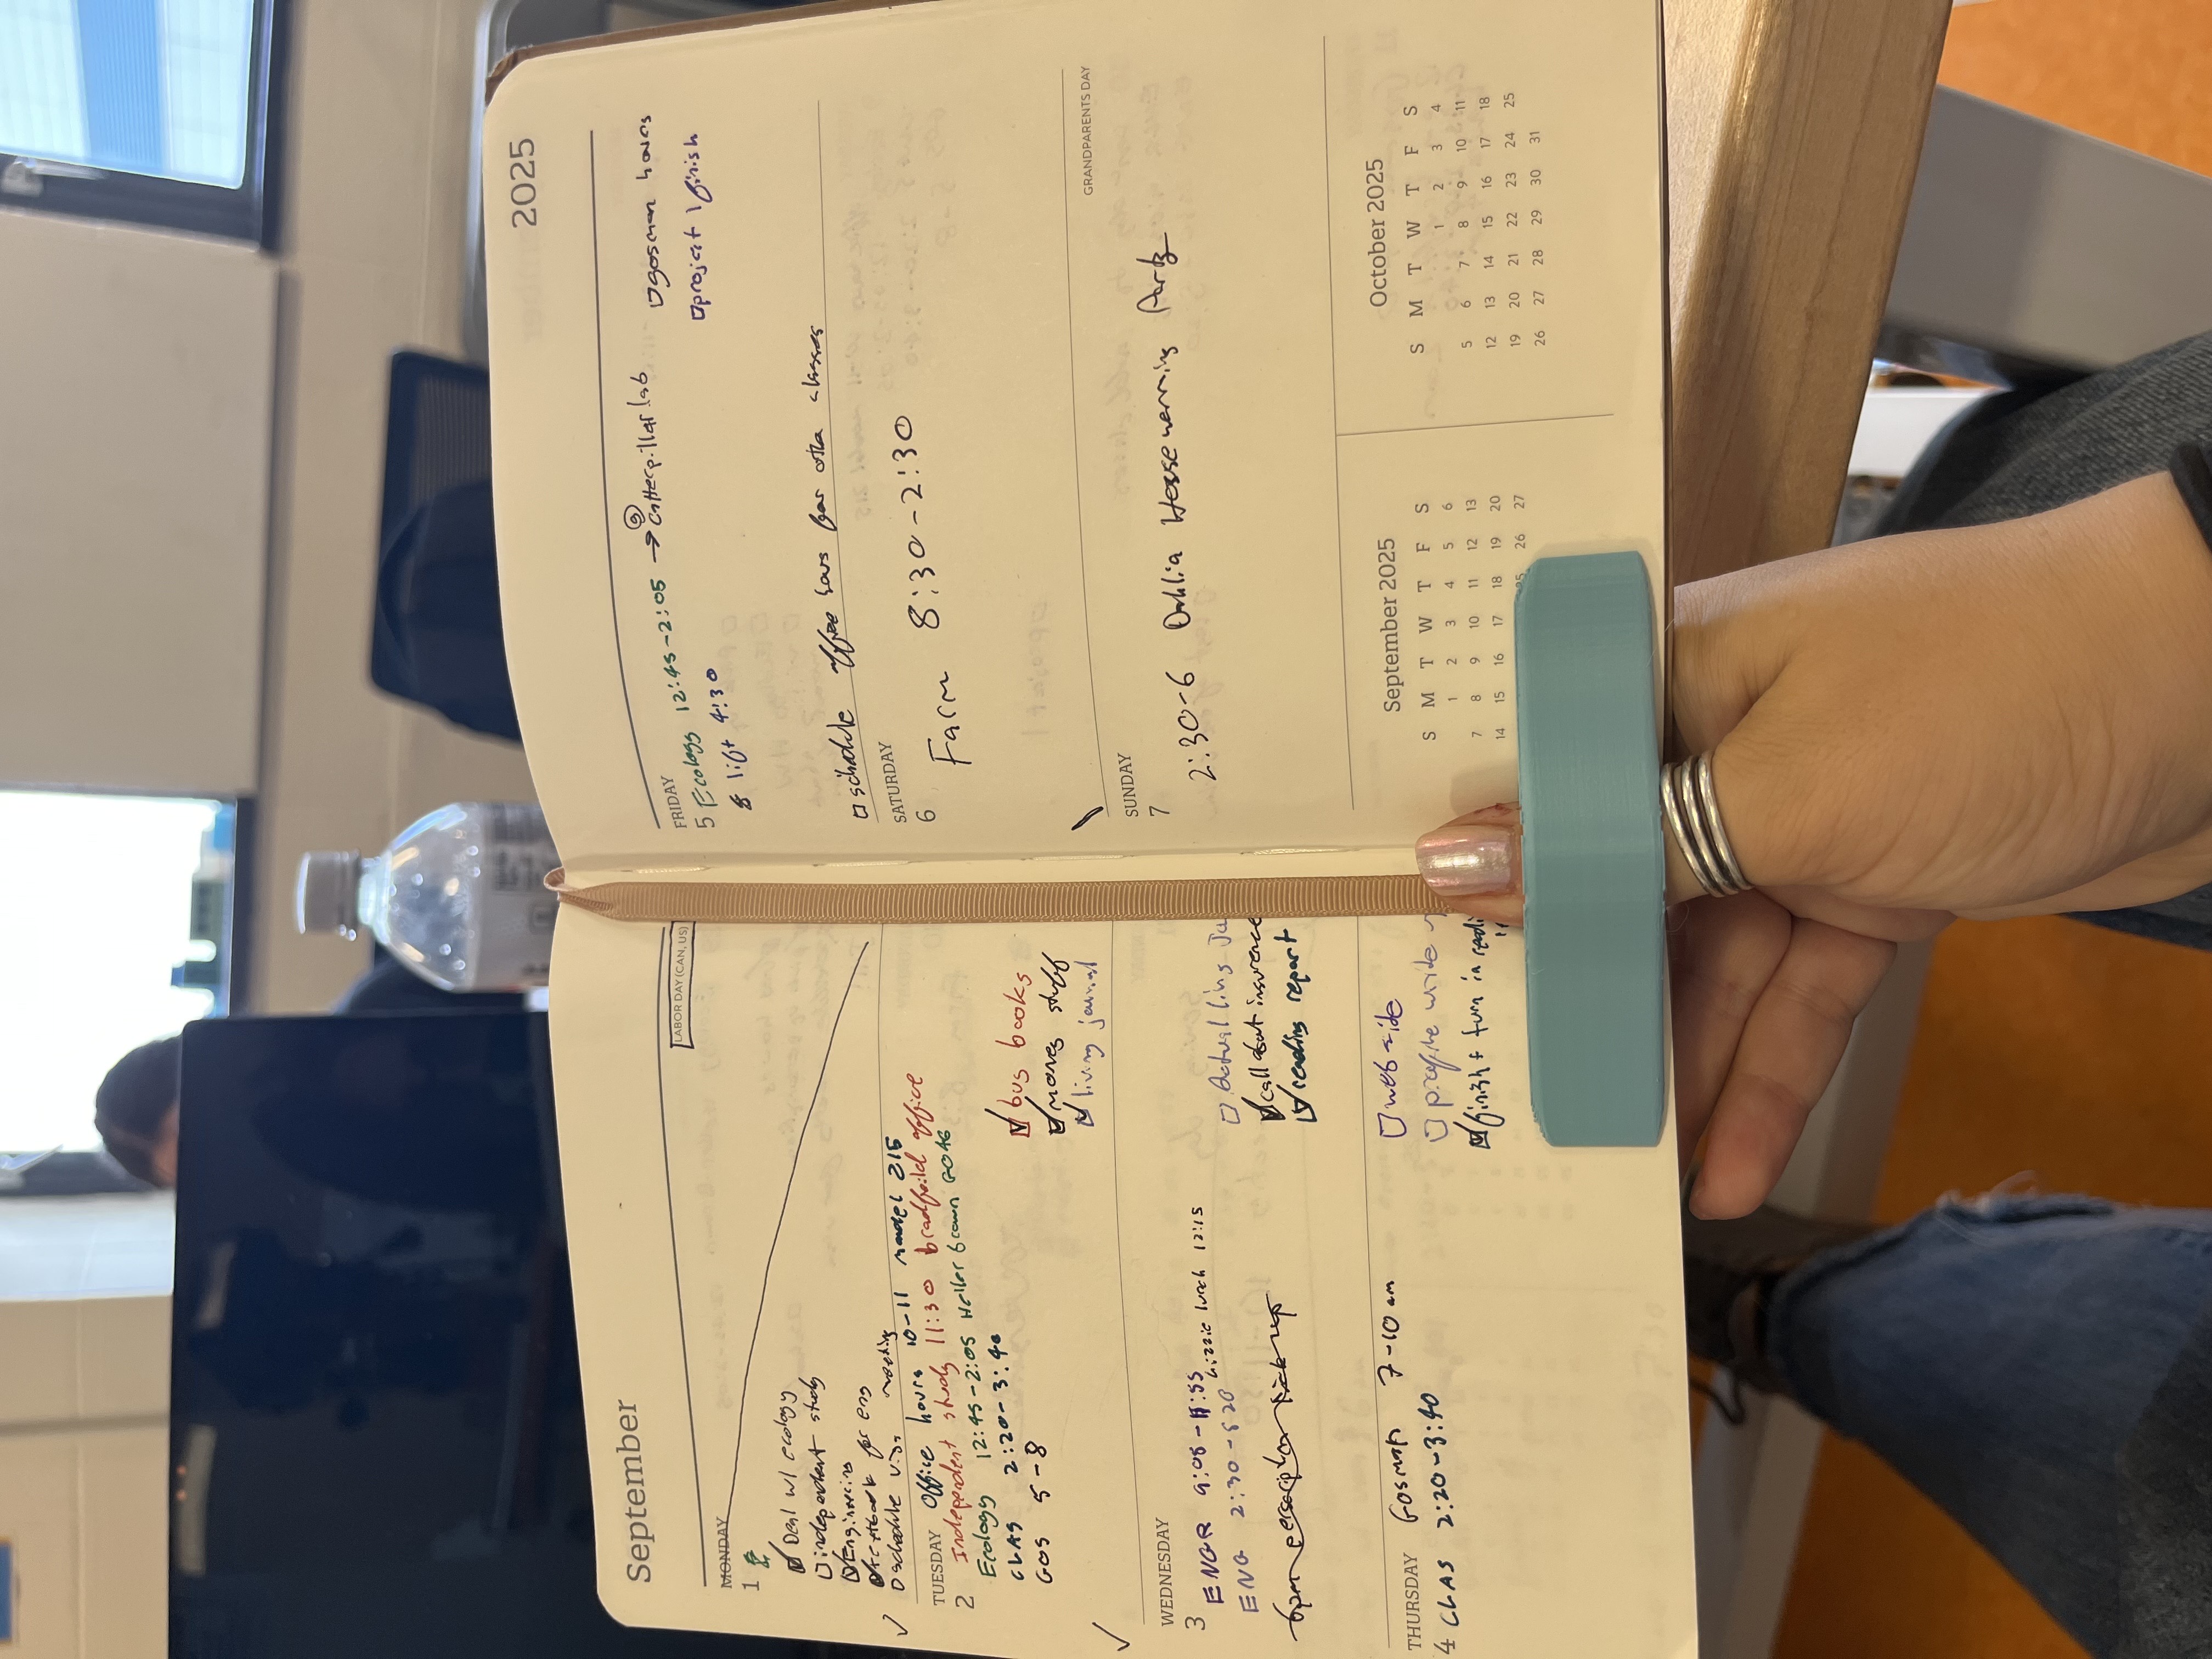 September
LABOR DAY (CAN, US)
MONDAY
1
Deal w/ ecology
independent study
Engineering
textbook for eng
schedule meeting
TUESDAY Office hours 10-11 mandel 215
2 Independent study 11:30 bradfeild office
Ecology 12:45-2:05 Heller brown G046
CLAS 2:20-3:40
GOS 5-8
buy books
money stuff
living journal
WEDNESDAY
3 ENGR 9:05-11:55
Lizzie lunch 12:15
ENG 2:30-520
6pm perscription pick up
Actual
call about insurence
reading report
THURSDAY Gosman 7-10 am
4 CLAS 2:20-3:40
website
profile write
finish + turn in
2025
FRIDAY
5 Ecology 12:45-2:05 → @ catterpillar lab
lift 4:30
gosman hours
project 1 finish
schedule office hours for other classes
SATURDAY
6
Farm 8:30-2:30
GRANDPARENTS DAY
SUNDAY
7
2:30-6 Dahlia Housewarming Party
September 2025
S M T W T F S
1 2 3 4 5 6
7 8 9 10 11 12 13
14 15 16 17 18 19 20
25 26 27
October 2025
S M T W T F S
1 2 3 4
5 6 7 8 9 10 11
12 13 14 15 16 17 18
19 20 21 22 23 24 25
26 27 28 29 30 31